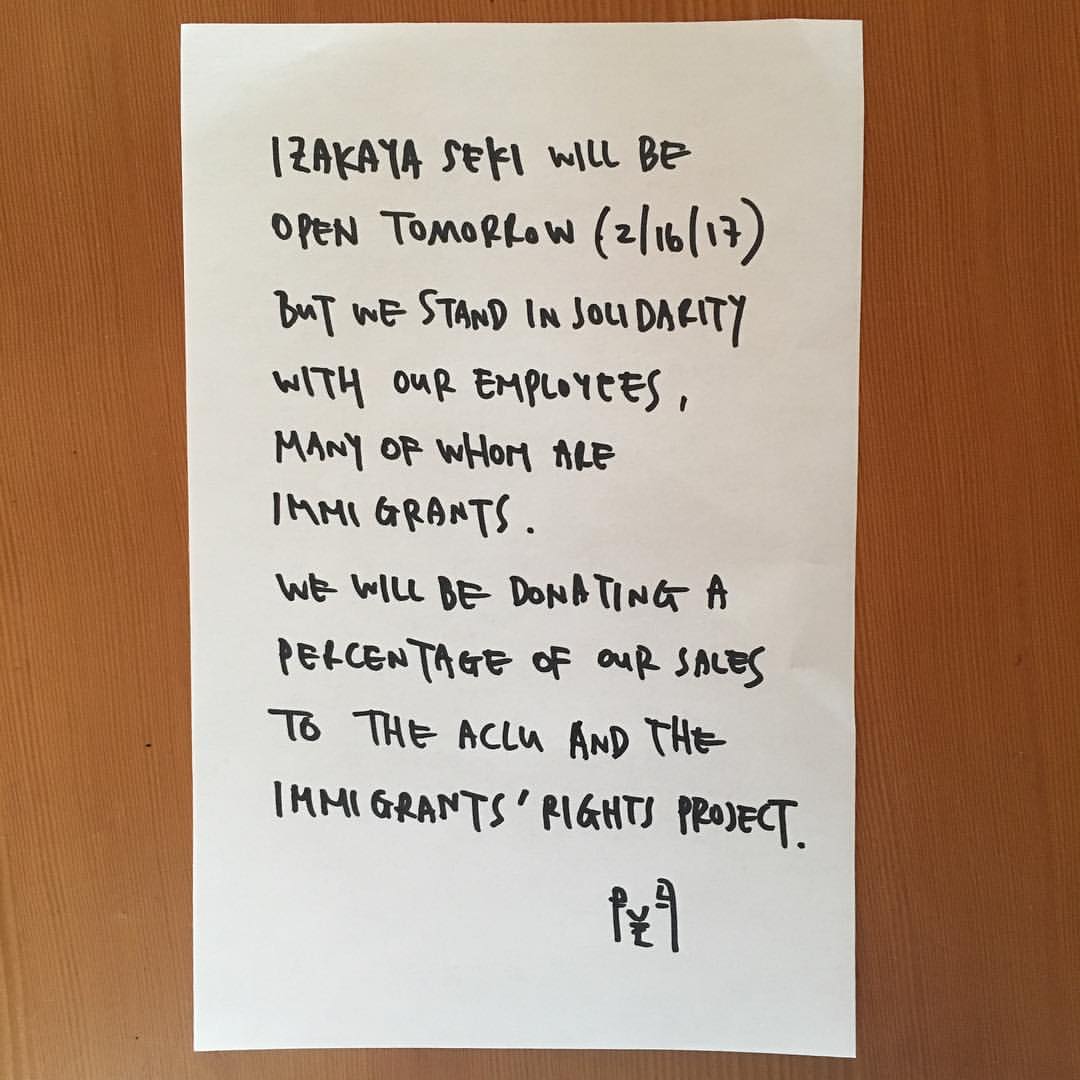 IZAKAYA SEKI WILL BE
OPEN TOMORROW (2/16/17)
BUT WE STAND IN SOLIDARITY
WITH OUR EMPLOYEES,
MANY OF WHOM ARE
IMMIGRANTS.
WE WILL BE DONATING A
PERCENTAGE OF OUR SALES
TO THE ACLU AND THE
IMMIGRANTS' RIGHTS PROJECT.